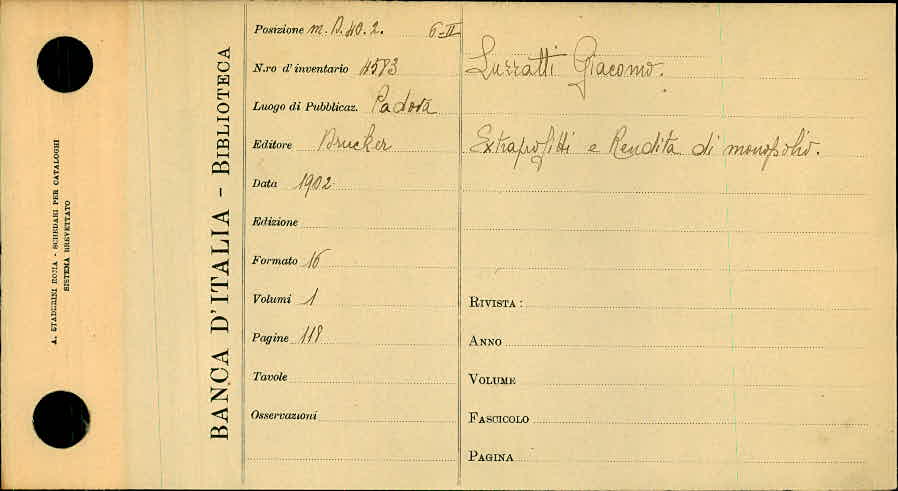 A. STADERINI ROMA - SCHEDARI PER CATALOGHI
SISTEMA BREVETTATO
BANCA D'ITALIA - BIBLIOTECA
Posizione m. B. 40. 2. 6-II
N.ro d'inventario 4583
Luogo di Pubblicaz. Padova
Editore Drucker
Data 1902
Edizione
Formato 16
Volumi 1
Pagine 118
Tavole
Osservazioni
Luzzatti Giacomo.
Extraprofitti e Rendita di monopolio.
RIVISTA :
ANNO
VOLUME
FASCICOLO
PAGINA